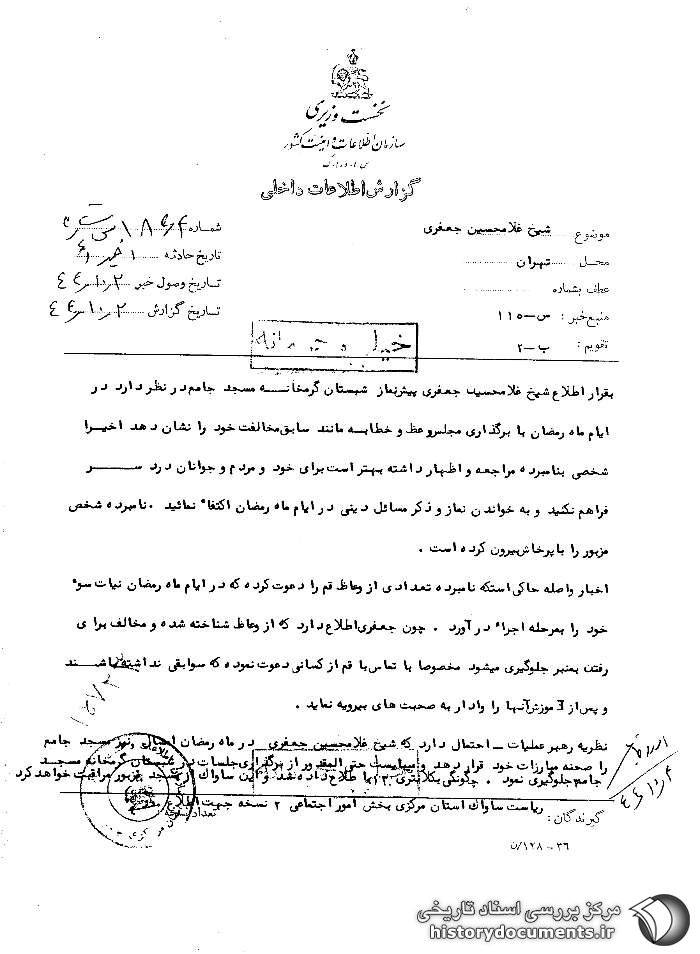 نخست وزیری
سازمان اطلاعات و امنیت کشور
س.ا.و.ا.ک
گزارش اطلاعات داخلی
موضوع شیخ غلامحسین جعفری
محل تهران
عطف بشماره
منبع خبر : س-۱۱۵
تقویم : ب-۲
شماره
تاریخ حادثه
تاریخ وصول خبر
تاریخ گزارش
خیلی محرمانه
بقرار اطلاع شیخ غلامحسین جعفری پیشنماز شبستان گرمخانه مسجد جامع در نظر دارد در
ایام ماه رمضان با برگذاری مجلس وعظ و خطابه مانند سابق مخالفت خود را نشان دهد اخیرا
شخصی بنامبرده مراجعه و اظهار داشته بهتر است برای خود و مردم و جوانان درد سر
فراهم نکنید و به خواندن نماز و ذکر مسائل دینی در ایام ماه رمضان اکتفاء نمائید . نامبرده شخص
مزبور را با پرخاش بیرون کرده است .
اخبار واصله حاکی استکه نامبرده تعدادی از وعاظ قم را دعوت کرده که در ایام ماه رمضان نیات سوء
خود را بمرحله اجراء در آورد . چون جعفری اطلاع دارد که از وعاظ شناخته شده و مخالف برای
رفتن بمنبر جلوگیری میشود مخصوصا با تماس با قم از کسانی دعوت نموده که سوابقی نداشته باشند
و پس از آموزش آنها را وادار به صحبت های بیرویه نماید .
نظریه رهبر عملیات - احتمال دارد که شیخ غلامحسین جعفری در ماه رمضان امسال نیز مسجد جامع
را صحنه مبارزات خود قرار دهد و میبایست حتی المقدور از برگزاری جلسات در شبستان گرمخانه مسجد
جامع جلوگیری نمود . چگونگی بکلانتری ۱۳ اطلاع داده شد و این ساواک از مسجد مزبور مراقبت خواهد کرد
گیرندگان : ریاست ساواک استان مرکزی بخش امور اجتماعی ۲ نسخه جهت اطلاع
تعداد نسخه
۳۶-۱۲۸/ن
مرکز بررسی اسناد تاریخی
historydocuments.ir